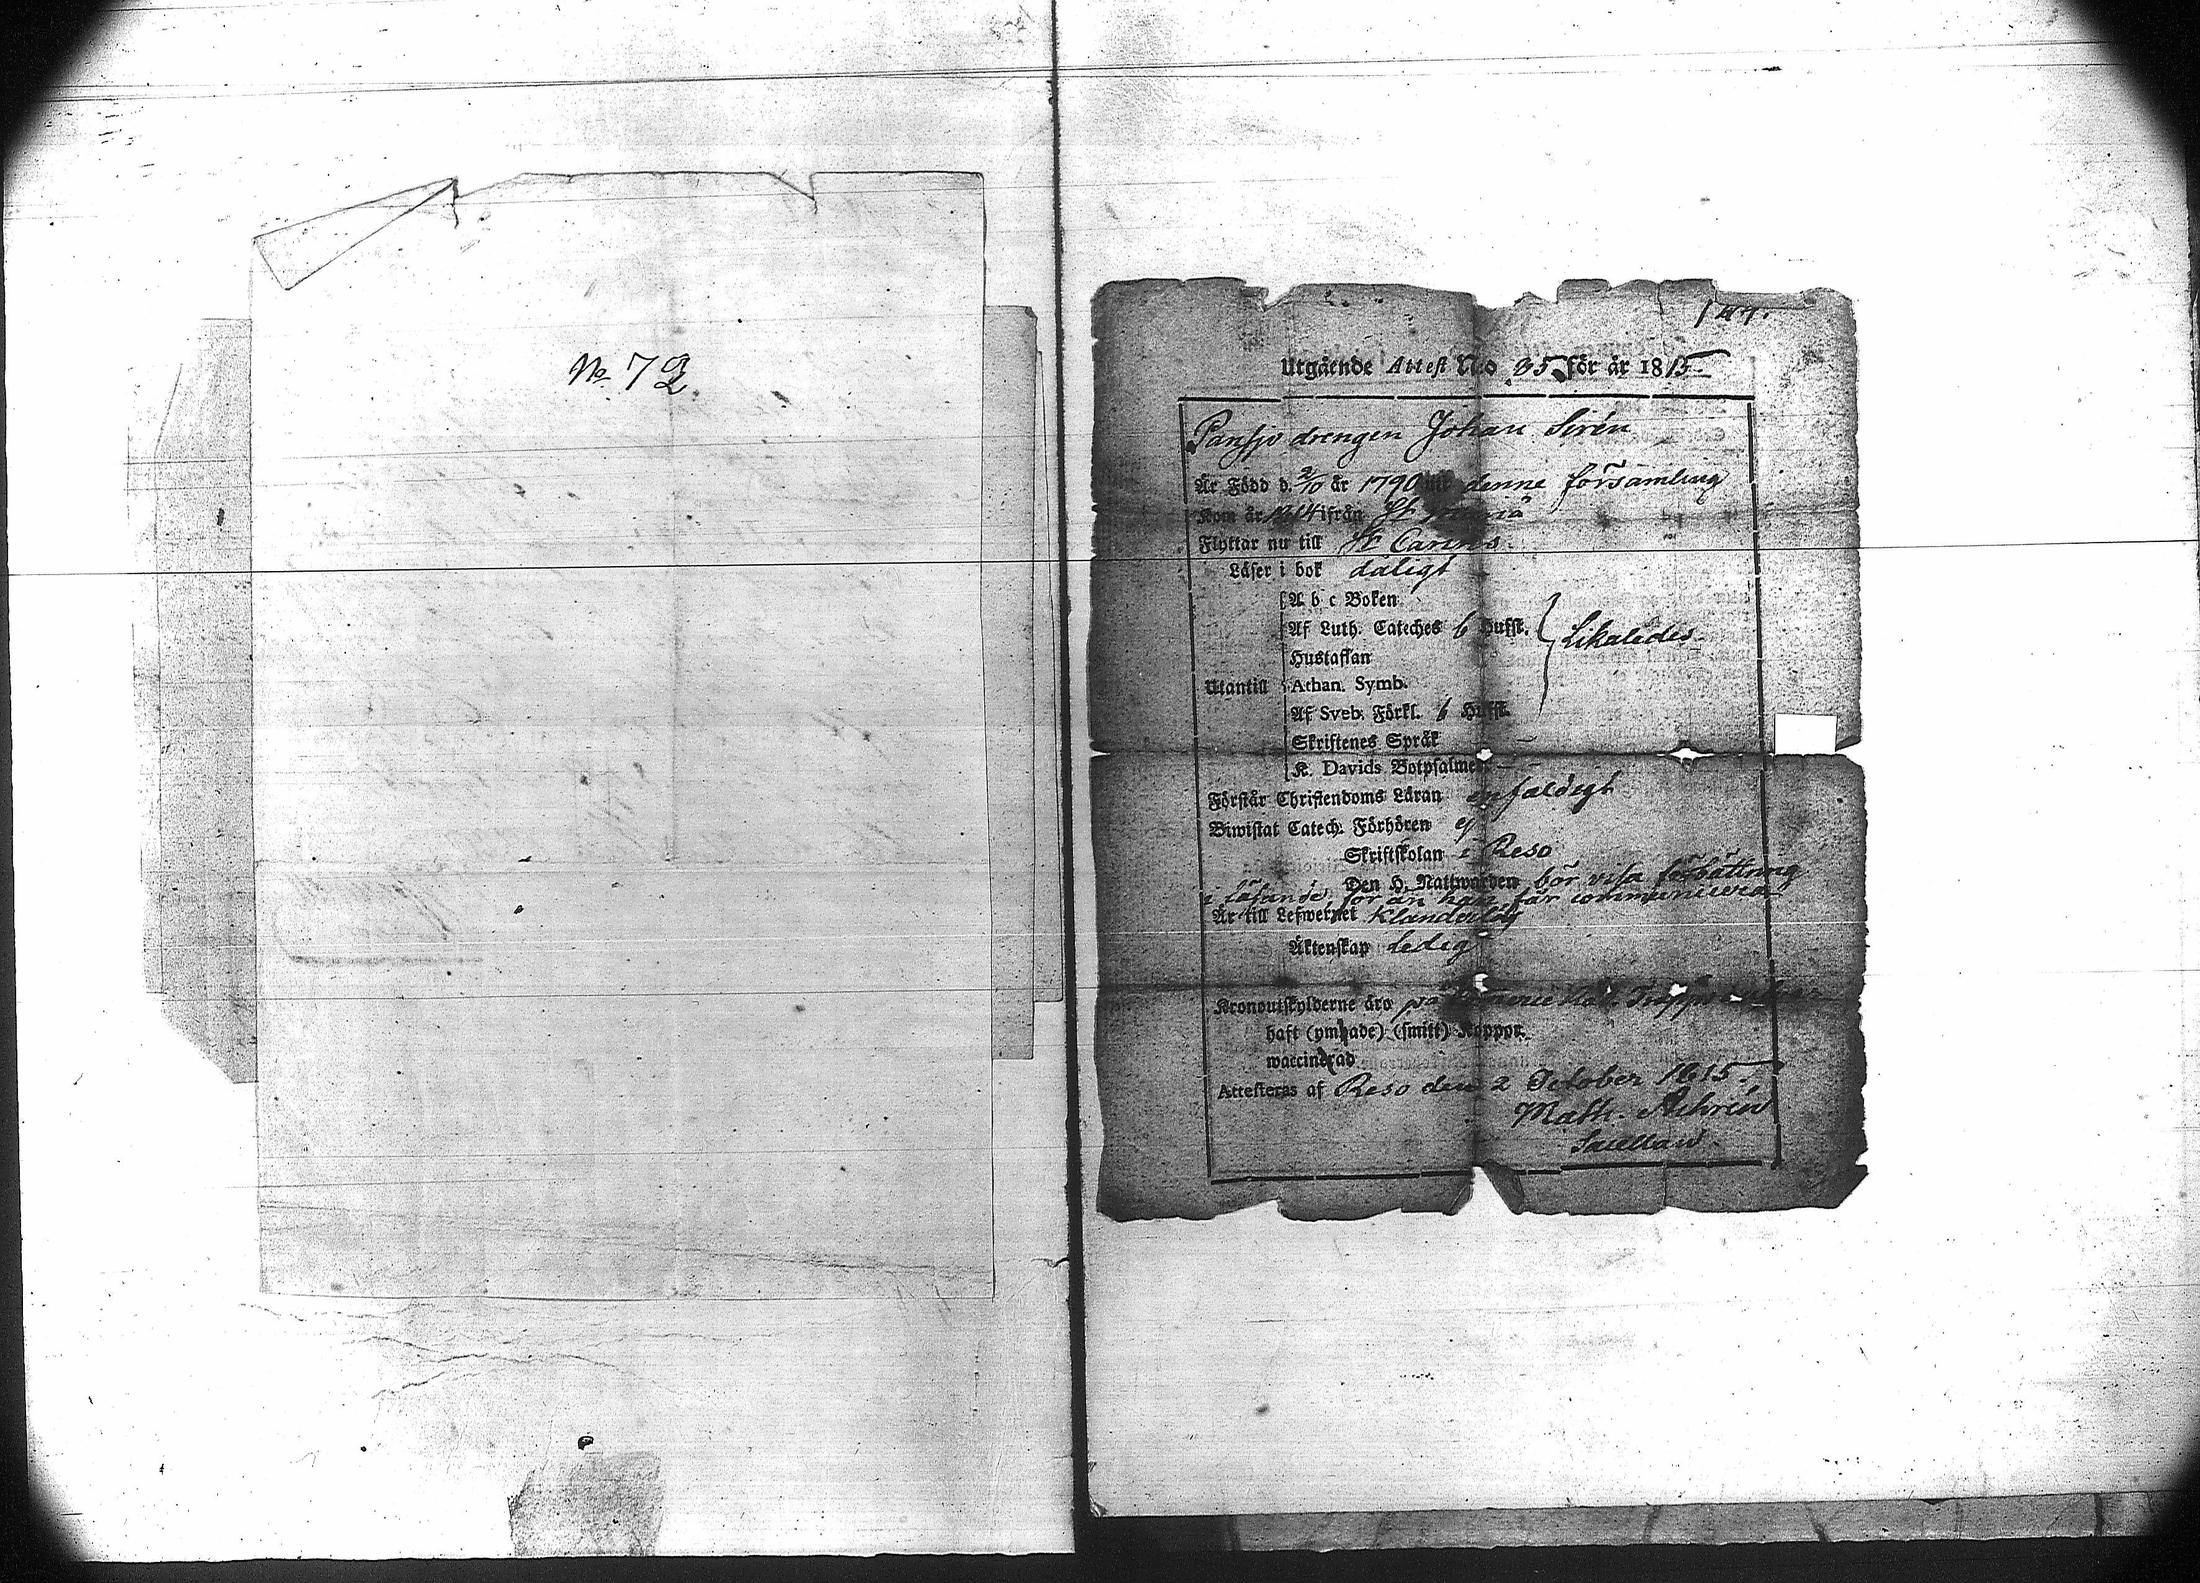 No 72.
147.
Utgående Attest No 35 för år 1815
Pansjo drengen Johan Sirén
Är Född d. 2/10 år 1790 denne församling
Kom år 1814 ifrån St
Flyttar nu till St Carins
Läser i bok daligt
A b c Boken
Af Luth. Cateches 6 Hufst.
Likaledes
Hustaflan
Utantill Athan. Symb.
Af Sveb. Förkl. 6 Hufst.
Skriftenes Språk —
K. Davids Botpsalmer —
Förstår Christendoms Läran enfaldigt
Biwistat Catech. Förhören ej
Skriftskolan i Reso
Den H. Nattwarden bör visa förbättring
i läsande, för än han får communicera
Är till Lefwernet Klanderlös
Äktenskap Ledig
Kronoutskylderne äro på
haft (ympade) (smitt) Koppor.
waccinerad
Attesteras af Reso den 2 October 1815.
Math. Achrén
Sacellan.